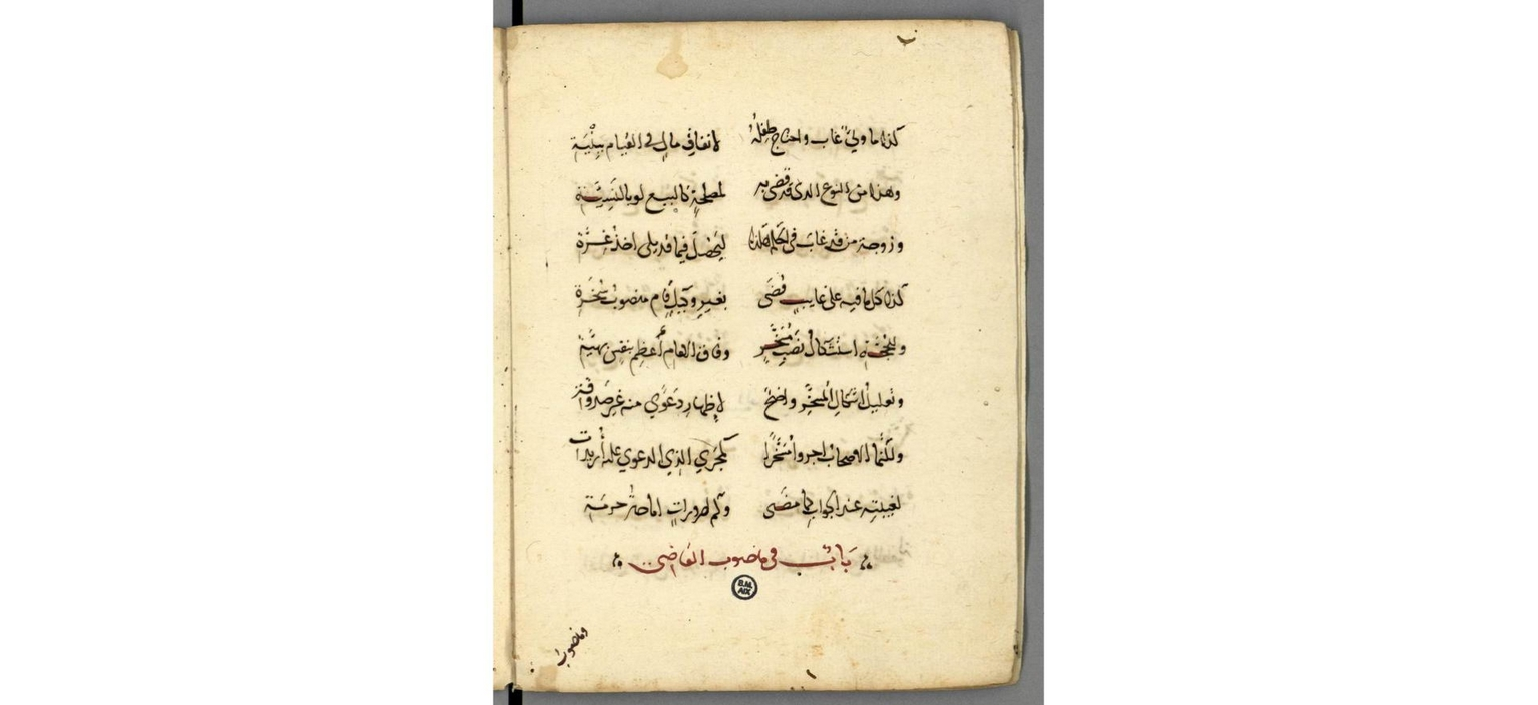 كذا ما ولي غاب واحتاج طفله لانفاق مال في القيام ببنية
وهذا من النوع الذي قد قضي به لمصلحة كالبيع لو بالنسيئة
وزوجة من قد غاب في الحكم هكذا ليحصل فيما قد يلي اخذ غرة
كذا كل ما فيه على غايب قضى بغير وكيل قام منصوب سخرة
وللجهة استشكال نصب مسخر وفاق الهمام أعظم بنفس بهية
وتعليل اشكال المسخر واضح لإظهار دعوي منه غير
ولكنما الاصحاب اجروا مسخرا كمجري الذي الدعوي عليه أريدت
لغيبته عند الجواب كما مضى وكم لضرورات اباحة حرمة
باب في منصوب القاضي
B.M. AIX
ومنصوب